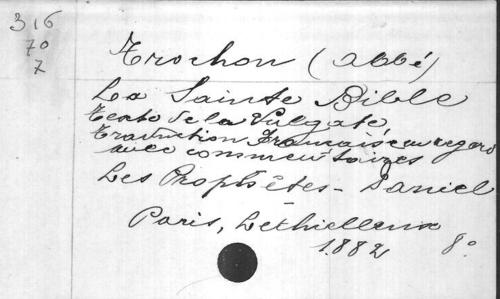 316
70
7
Trochon (abbé)
La Sainte Bible
Texte de la Vulgate
traduction Française en regard
avec commentaires
Les Prophètes - Daniel
Paris, Lethielleux
1882 8°